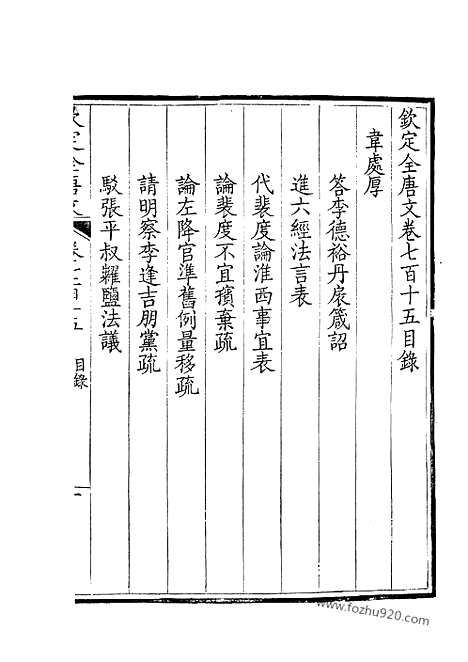 欽定全唐文卷七百十五目錄
韋處厚
答李德裕丹扆箴詔
進六經法言表
代裴度論淮西事宜表
論裴度不宜擯棄疏
論左降官準舊例量移疏
請明察李逢吉朋黨疏
駁張平叔糶鹽法議
欽定全唐文
目錄
www.fozhu920.com